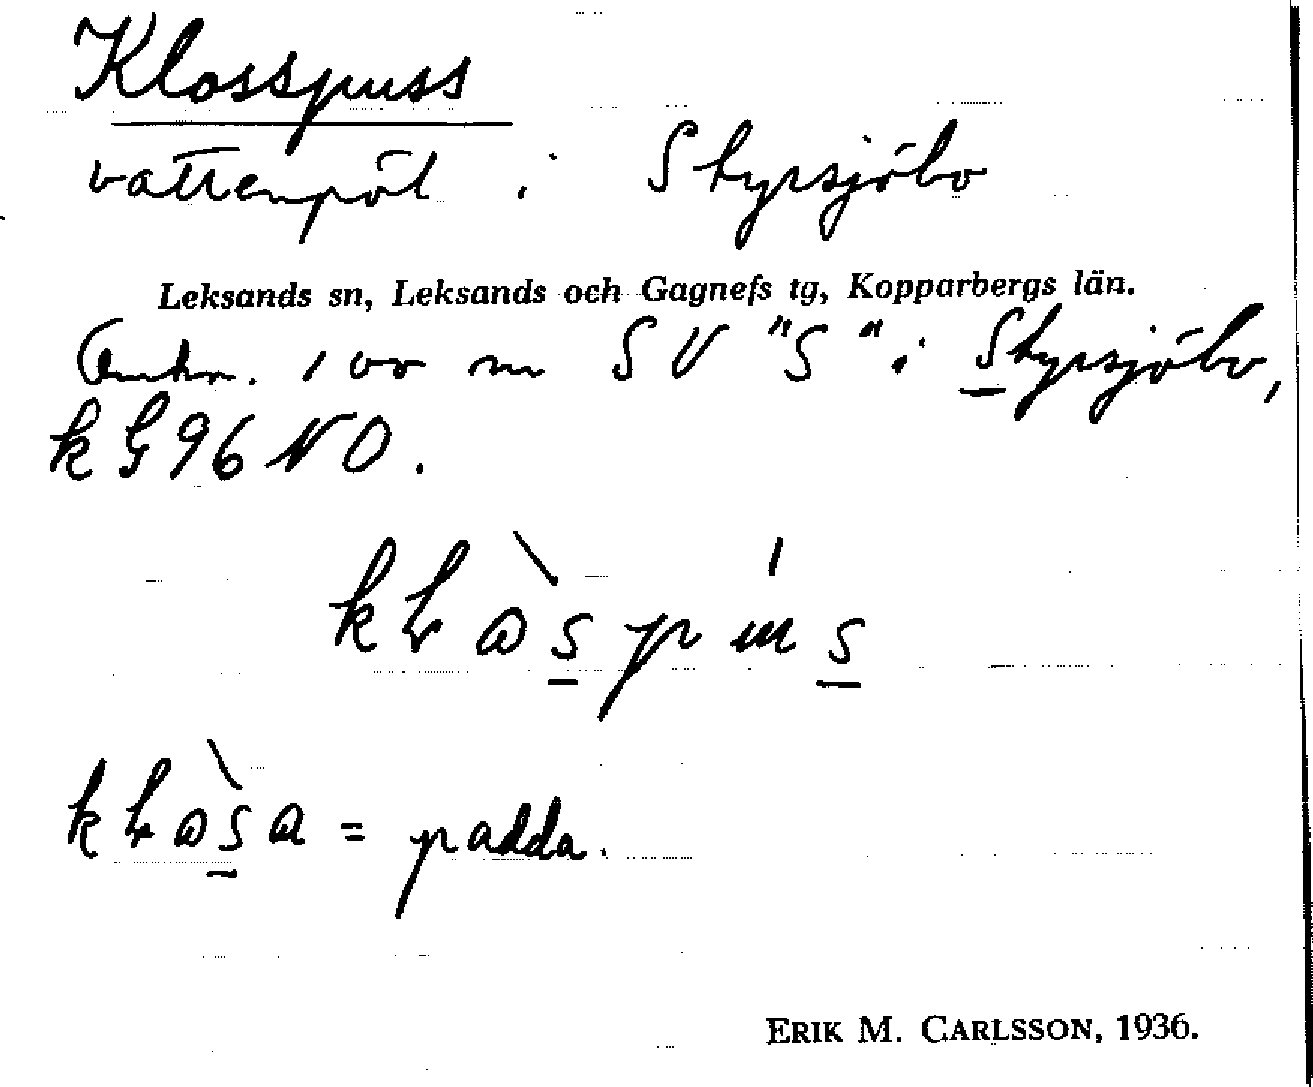 Klosspuss
vattenpöl i Styrsjöbo
Leksands sn, Leksands och Gagnefs tg, Kopparbergs län.
Omkr. 100 m SV "S" i Styrsjöbo,
kG96NO.
= padda.
ERIK M. CARLSSON, 1936.